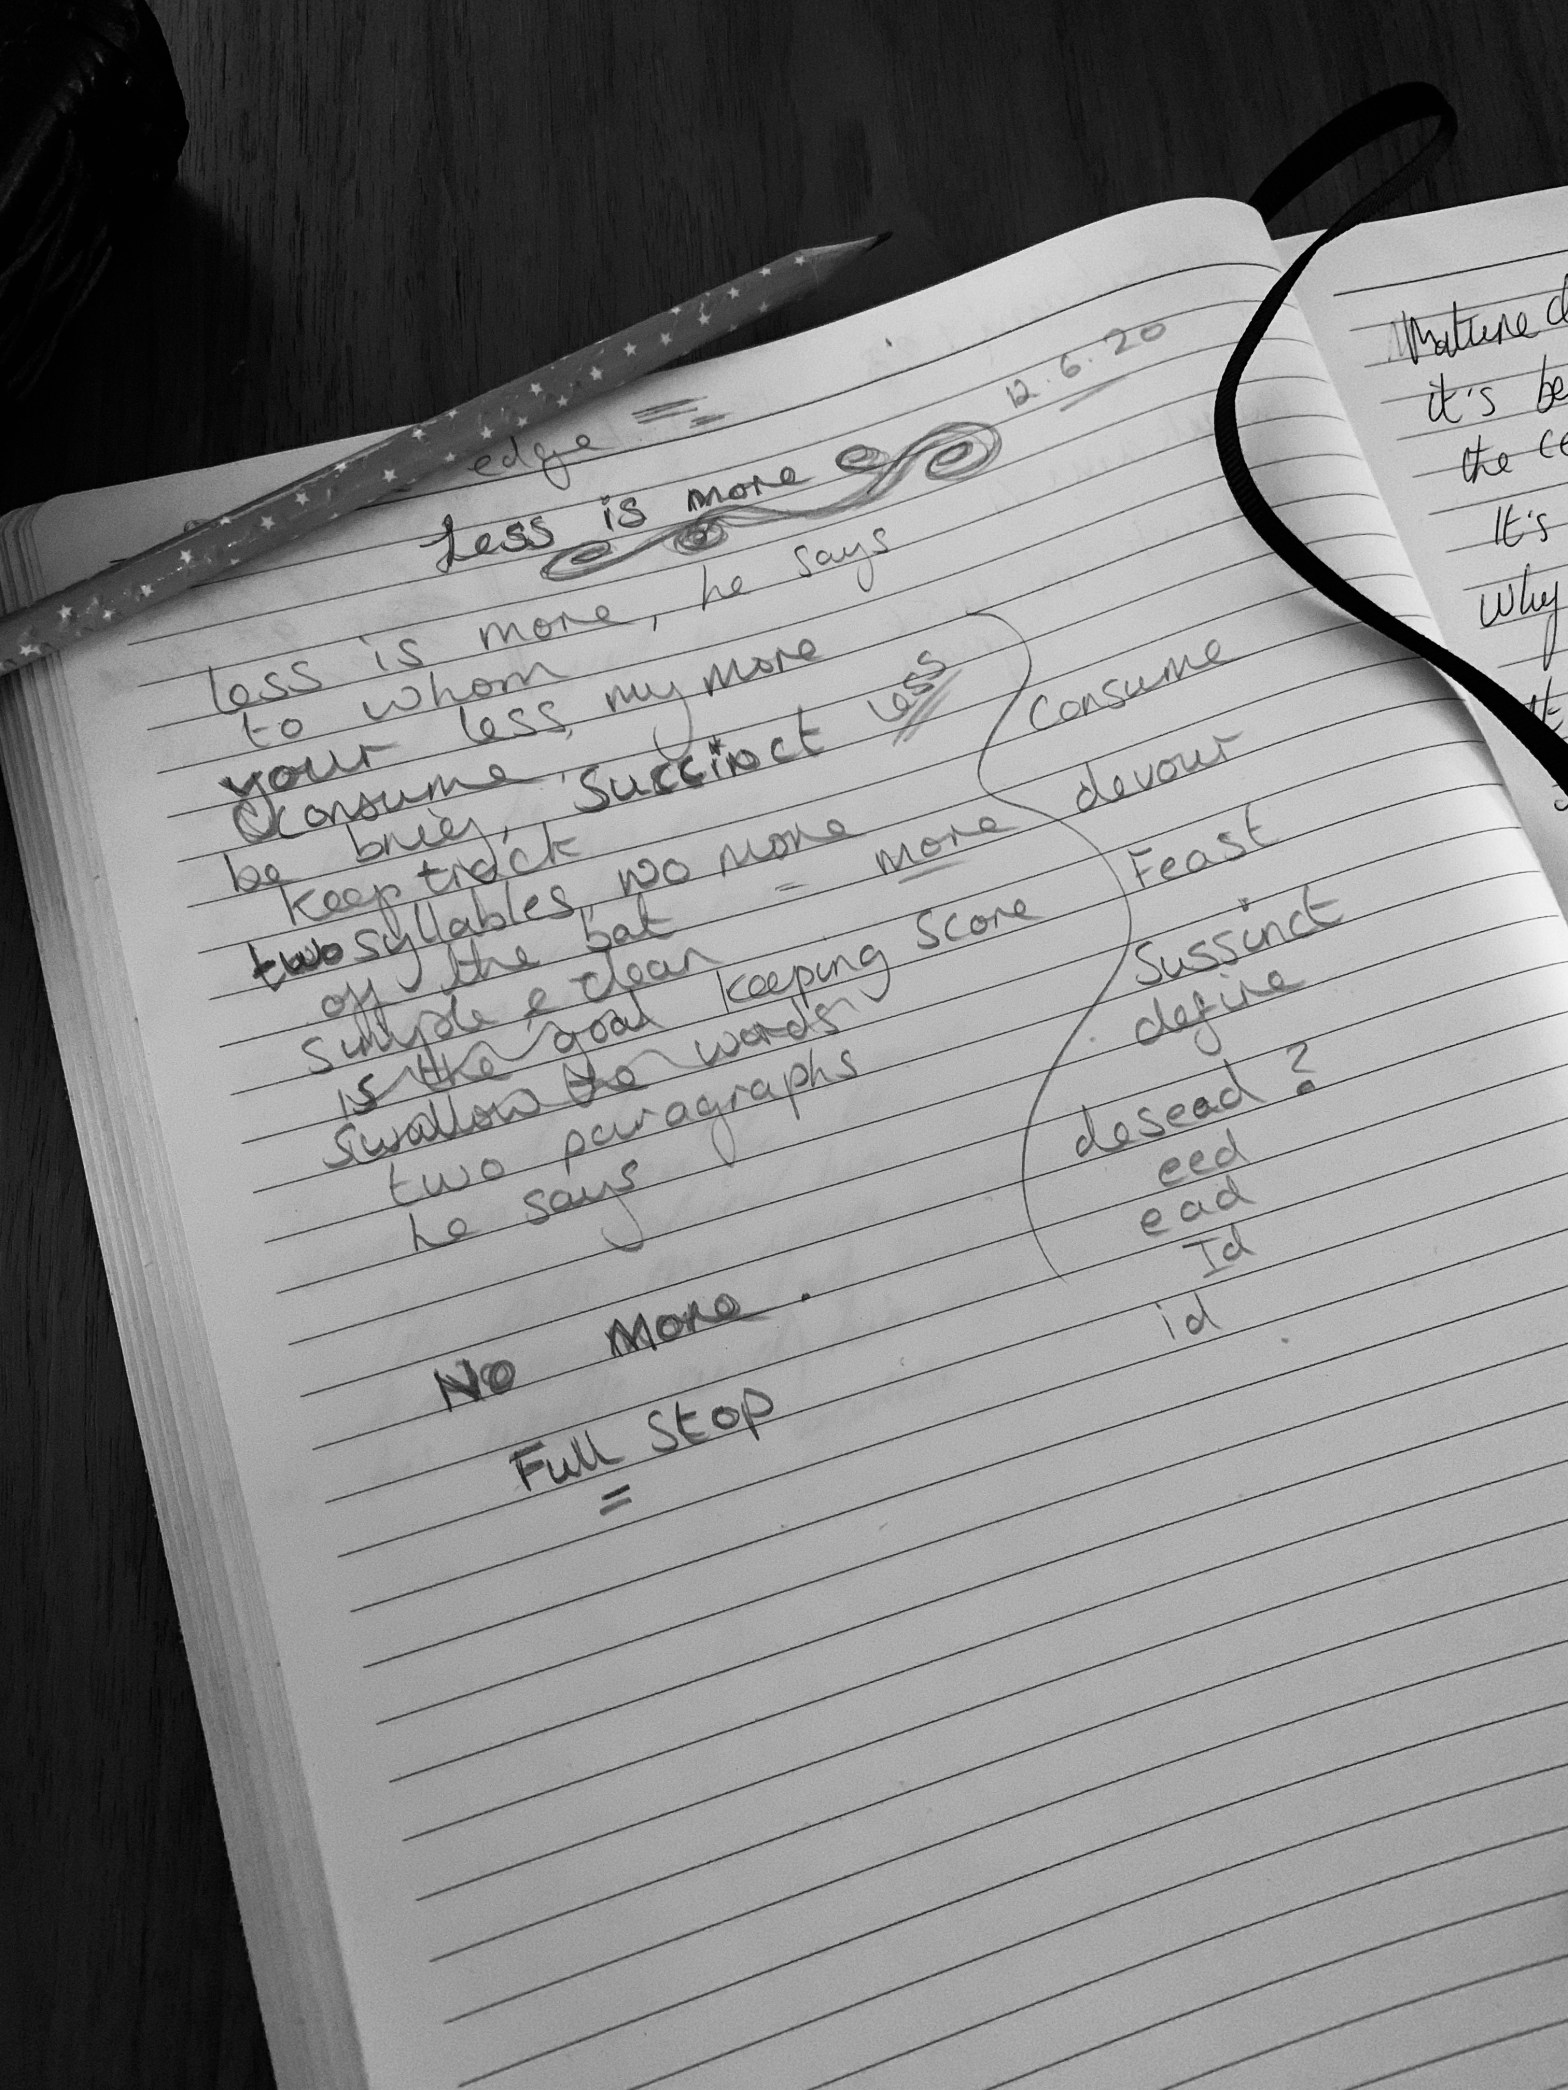 12.6.20
edge
Less is more
less is more, he says
to whom
your less, my more
consume
be brief, succinct less
keep track
two syllables, no more = more
off the bat
simple & clean
is the goal keeping score
swallow the words
two paragraphs
he says
No More.
Full Stop
Consume
devour
Feast
Sussinct
define
desead ?
eed
ead
Id
id
Mature
it's be
the ce
It's
Why